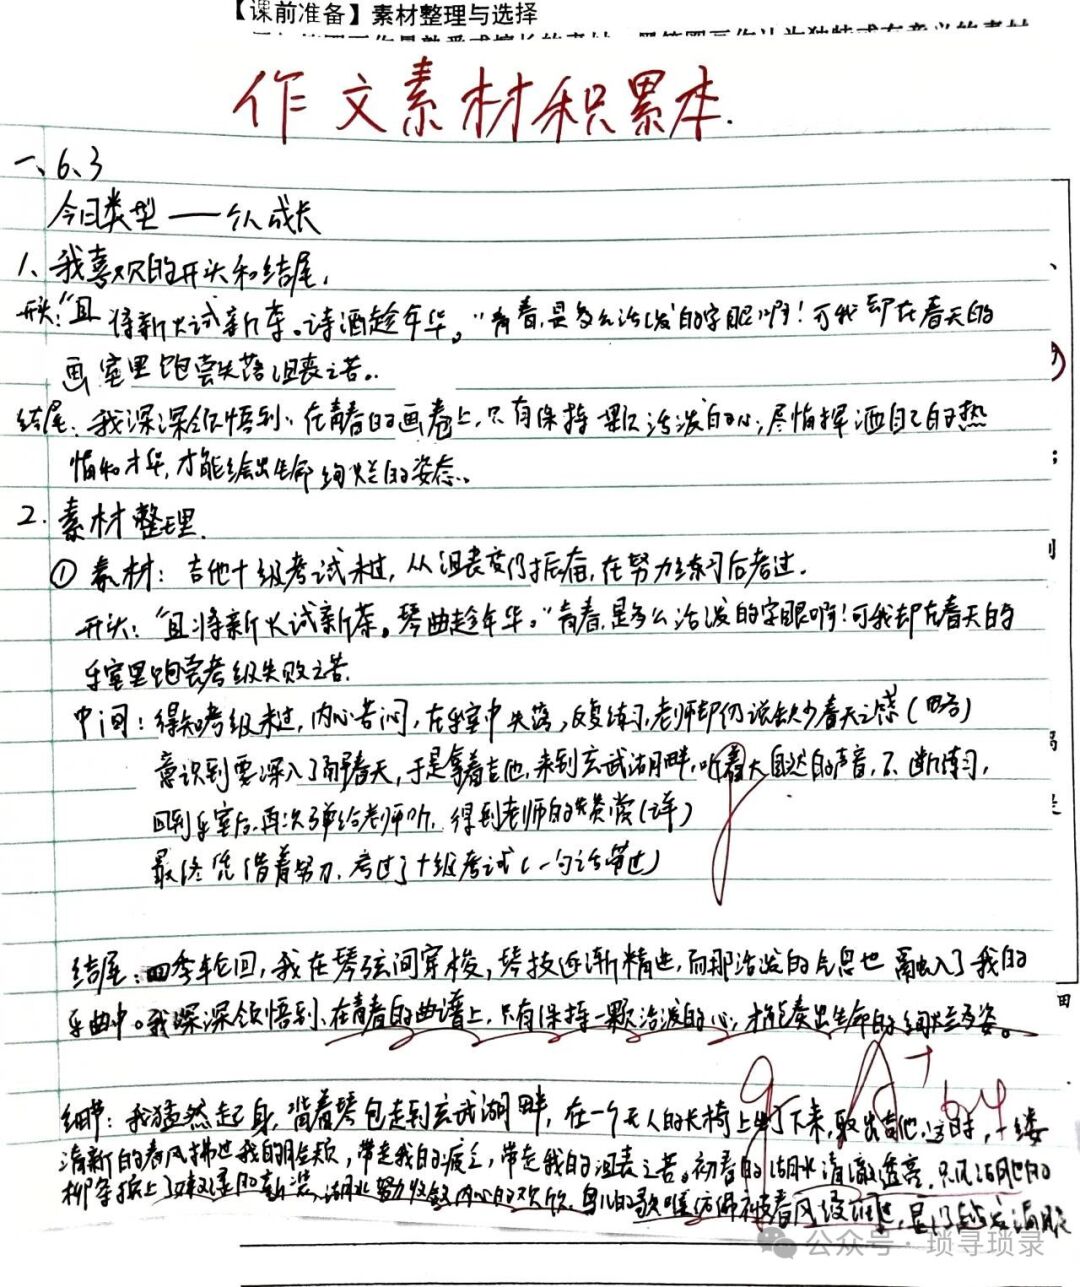 【课前准备】素材整理与选择
作文素材积累本.
一、6、3
今日类型——个人成长
1、我喜欢的开头和结尾.
开头:“且将新火试新茶。诗酒趁年华。”青春,是多么活泼的字眼啊!可我却在春天的
画室里饱尝失落沮丧之苦。
结尾:我深深领悟到:在青春的画卷上,只有保持一颗活泼的心,尽情挥洒自己的热
情和才华,才能绘出生命绚烂的姿态。
2.素材整理.
①素材:吉他十级考试未过,从沮丧变得振奋,在努力练习后考过.
开头:“且将新火试新茶。琴曲趁年华。”青春,是多么活泼的字眼啊!可我却在春天的
乐室里饱尝考级失败之苦.
中间:得知考级未过,内心苦闷,在乐室中失落,反复练习,老师却仍说缺少春天之感(略)
意识到要深入了解春天,于是拿着吉他,来到玄武湖畔,听着大自然的声音,不断练习,
回到乐室后,再次弹给老师听,得到老师的赞赏(详)
最终凭借着努力,考过了十级考试(一句话带过)
结尾:四季轮回,我在琴弦间穿梭,琴技逐渐精进,而那活泼的气息也融入了我的
乐曲中。我深深领悟到,在青春的曲谱上,只有保持一颗活泼的心,才能奏出生命的绚烂多姿。
A+
6.4
细节:我猛然起身,背着琴包走到玄武湖畔,在一个无人的长椅上坐了下来,取出吉他,这时,一缕
清新的春风拂过我的脸颊,带走我的疲乏,带走我的沮丧之苦。初春的湖水清澈透亮,只见湖畔的
柳条换上了嫩绿的新装,湖水努力收敛内心的欢欣,鸟儿的歌喉仿佛被春风浸润过,显得越发清脆
公众号·琐寻琐录